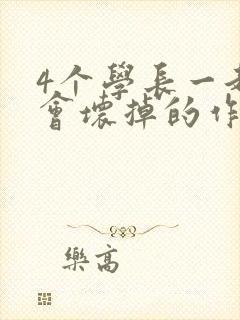 4个學長一
會壞掉的作
樂高